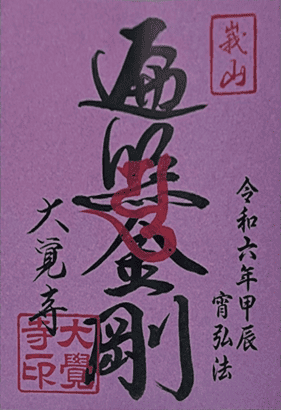 峩山
令和六年甲辰
宵弘法
遍照金剛
大覺寺
大覺
寺印